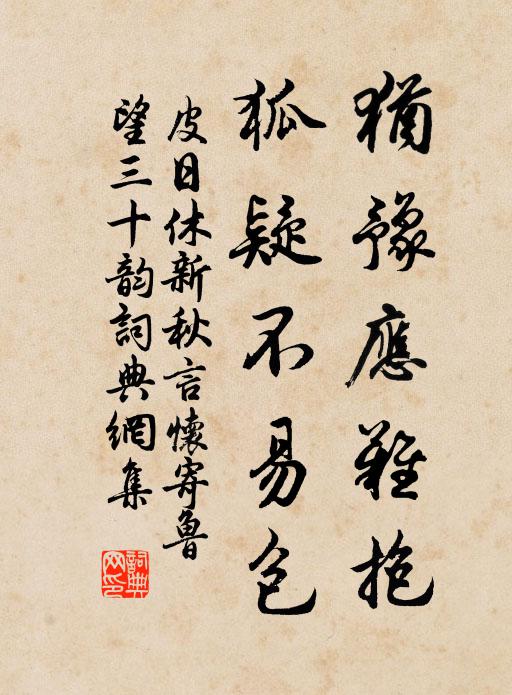 猶豫應難抱
狐疑不易包
皮日休新秋言懷寄魯
望三十韵詞典網集
詞典
网印